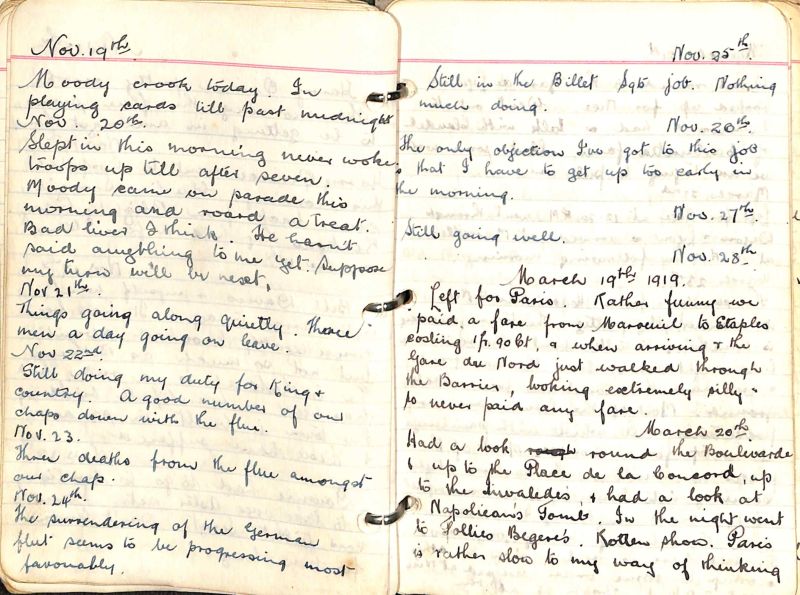 Nov. 19th.
Moody crook today. In
playing cards till past midnight
Nov. 20th.
Slept in this morning never woke
troops up till after seven.
Moody came on parade this
morning and roard a treat.
Bad liver I think. He hasn't
said anything to me yet. Suppose
my turn will be next.
Nov 21st.
Things going along quietly. Three
men a day going on leave.
Nov 22nd
Still doing my duty for King +
country. A good number of our
chaps down with the flue.
Nov. 23.
Three deaths from the flue amongst
our chaps.
Nov. 24th.
The surrendering of the German
fleet seems to be progressing most
favourably.
Nov. 25th.
Still in the Billet Sgts job. Nothing
much doing.
Nov. 26th.
The only objection I've got to this job
is that I have to get up too early in
the morning.
Nov. 27th.
Still going well.
Nov. 28th.
March 19th 1919.
Left for Paris. Rather funny we
paid a fare from Marseuil to Etaples
costing 1fr. 90bt, + when arriving the
Gare du Nord just walked through
the Barrier, looking extremely silly
so never paid any fare.
March 20th.
Had a look round the Boulevarde
up to the Place de la Concord, up
to the Invaledes, + had a look at
Napoliean's Tomb. In the night went
to Follies Begere's. Rotten show. Paris
is rather slow to my way of thinking